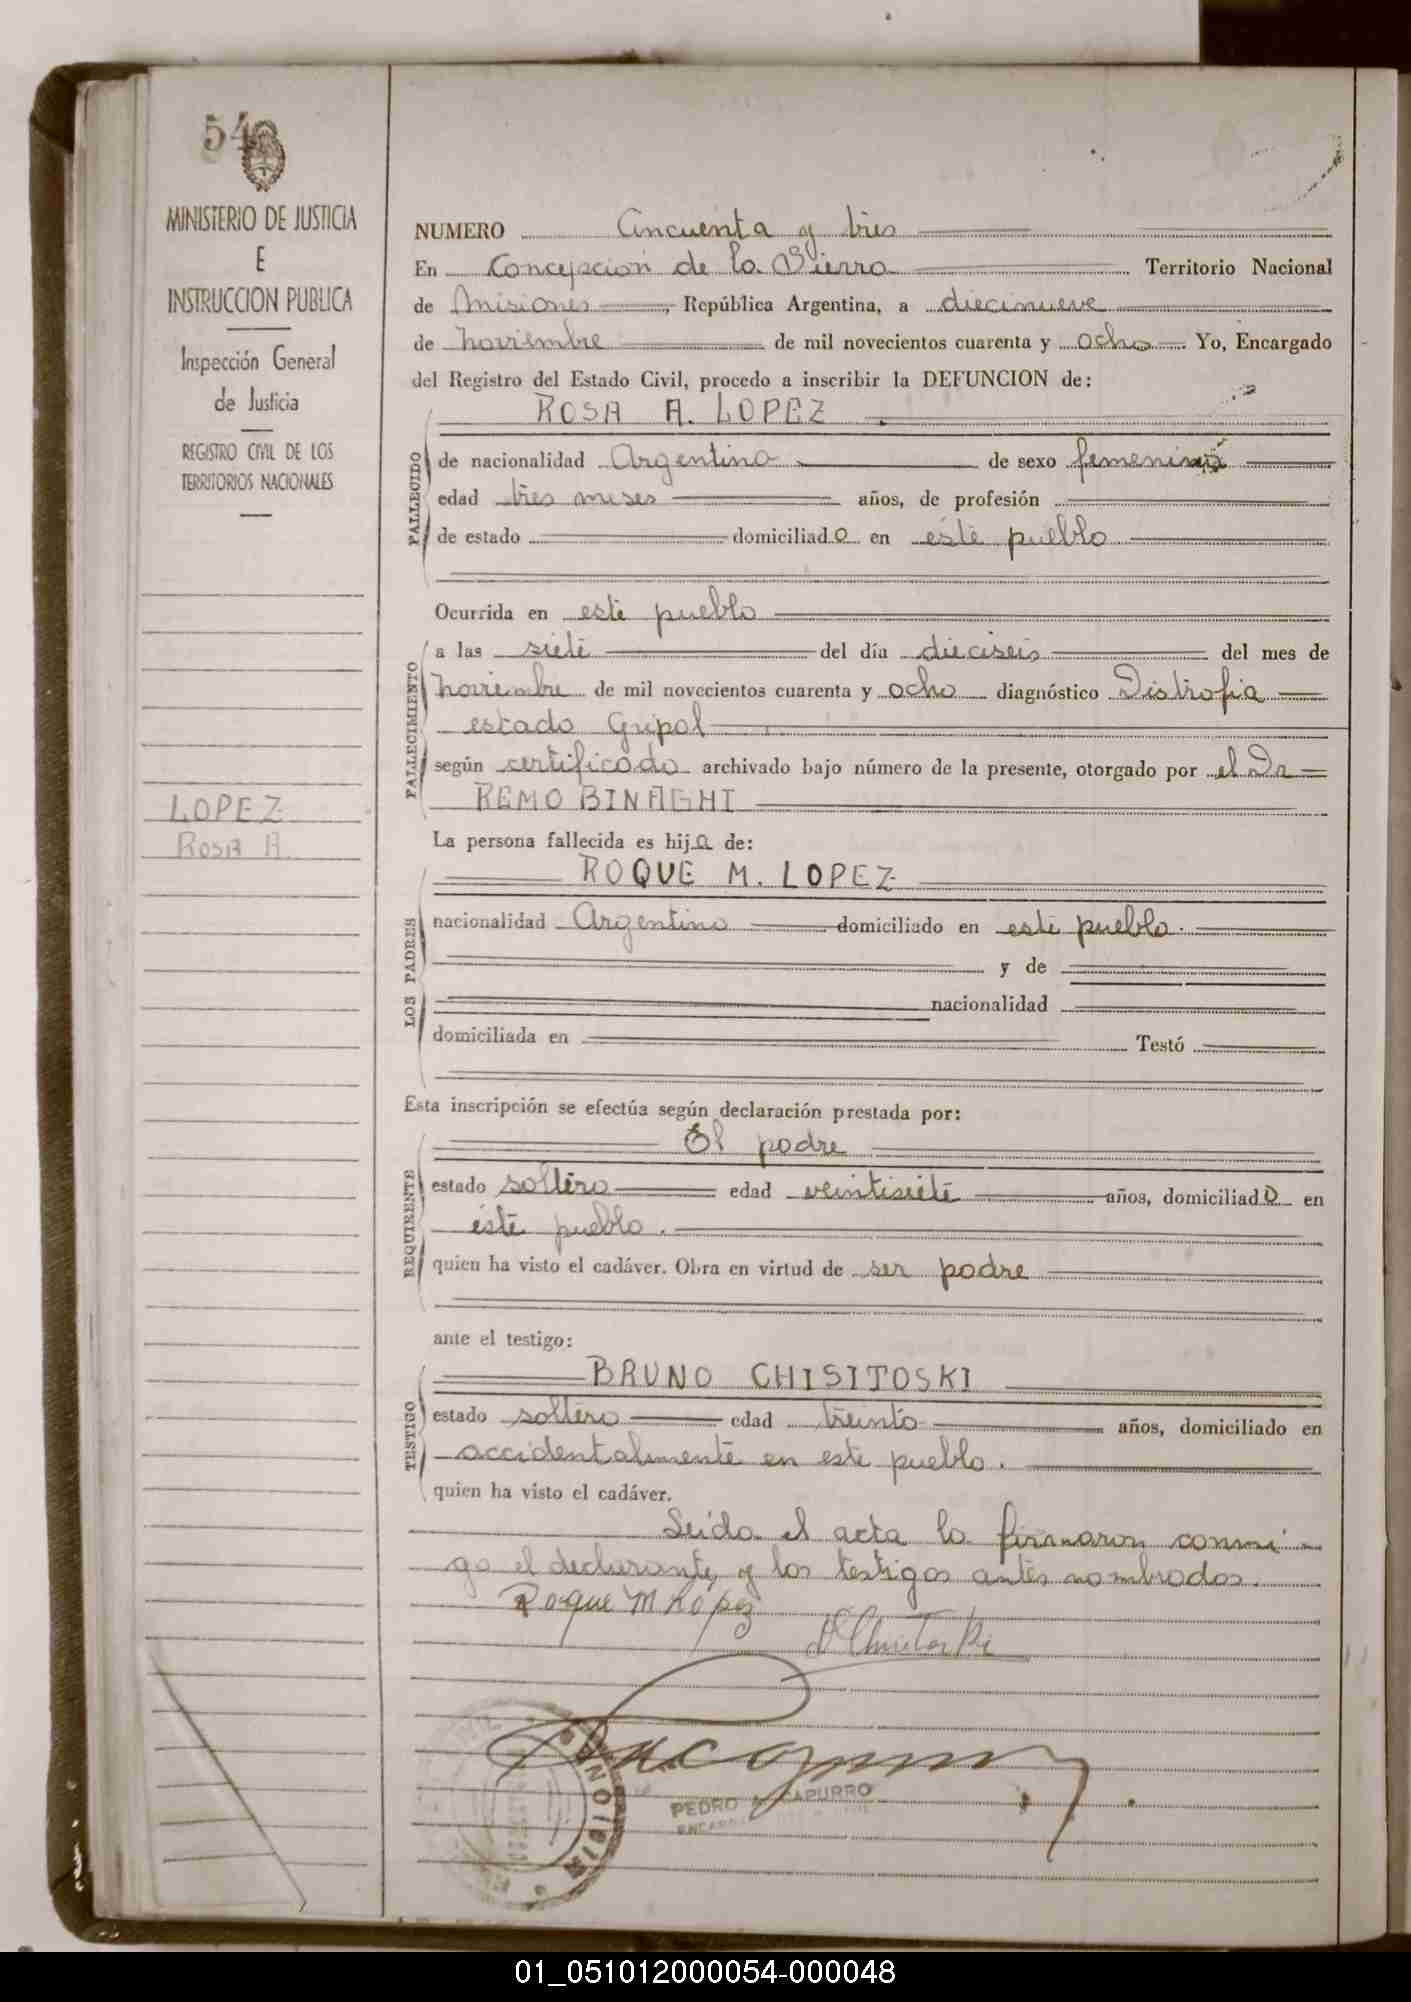 54
MINISTERIO DE JUSTICIA
E
INSTRUCCION PUBLICA
Inspección General
de Justicia
REGISTRO CIVIL DE LOS
TERRITORIOS NACIONALES
LOPEZ
Rosa A.
NUMERO Cincuenta y tres
En Concepcion de la Sierra Territorio Nacional
de Misiones, República Argentina, a diecinueve
de noviembre de mil novecientos cuarenta y ocho Yo, Encargado
del Registro del Estado Civil, procedo a inscribir la DEFUNCION de:
ROSA A. LOPEZ
FALLECIDO
de nacionalidad Argentina de sexo femenino
edad tres meses años, de profesión
de estado domiciliado en este pueblo
Ocurrida en este pueblo
FALLECIMIENTO
a las siete del día dieciseis del mes de
noviembre de mil novecientos cuarenta y ocho diagnóstico Distrofia
estado Gripal
según certificado archivado bajo número de la presente, otorgado por el Dr
REMO BINAGHI
La persona fallecida es hija de:
ROQUE M. LOPEZ
LOS PADRES
nacionalidad Argentino domiciliado en este pueblo.
y de
nacionalidad
domiciliada en Testó
Esta inscripción se efectúa según declaración prestada por:
El padre
REQUIRENTE
estado soltero edad veintisiete años, domiciliado en
este pueblo.
quien ha visto el cadáver. Obra en virtud de ser padre
ante el testigo:
BRUNO CHISITOSKI
TESTIGO
estado soltero edad treinta años, domiciliado en
accidentalmente en este pueblo.
quien ha visto el cadáver.
Leida el acta la firmaron conmi-
go el declarante, y los testigos antes nombrados.
Roque M López
PEDRO CAPURRO
01_051012000054-000048